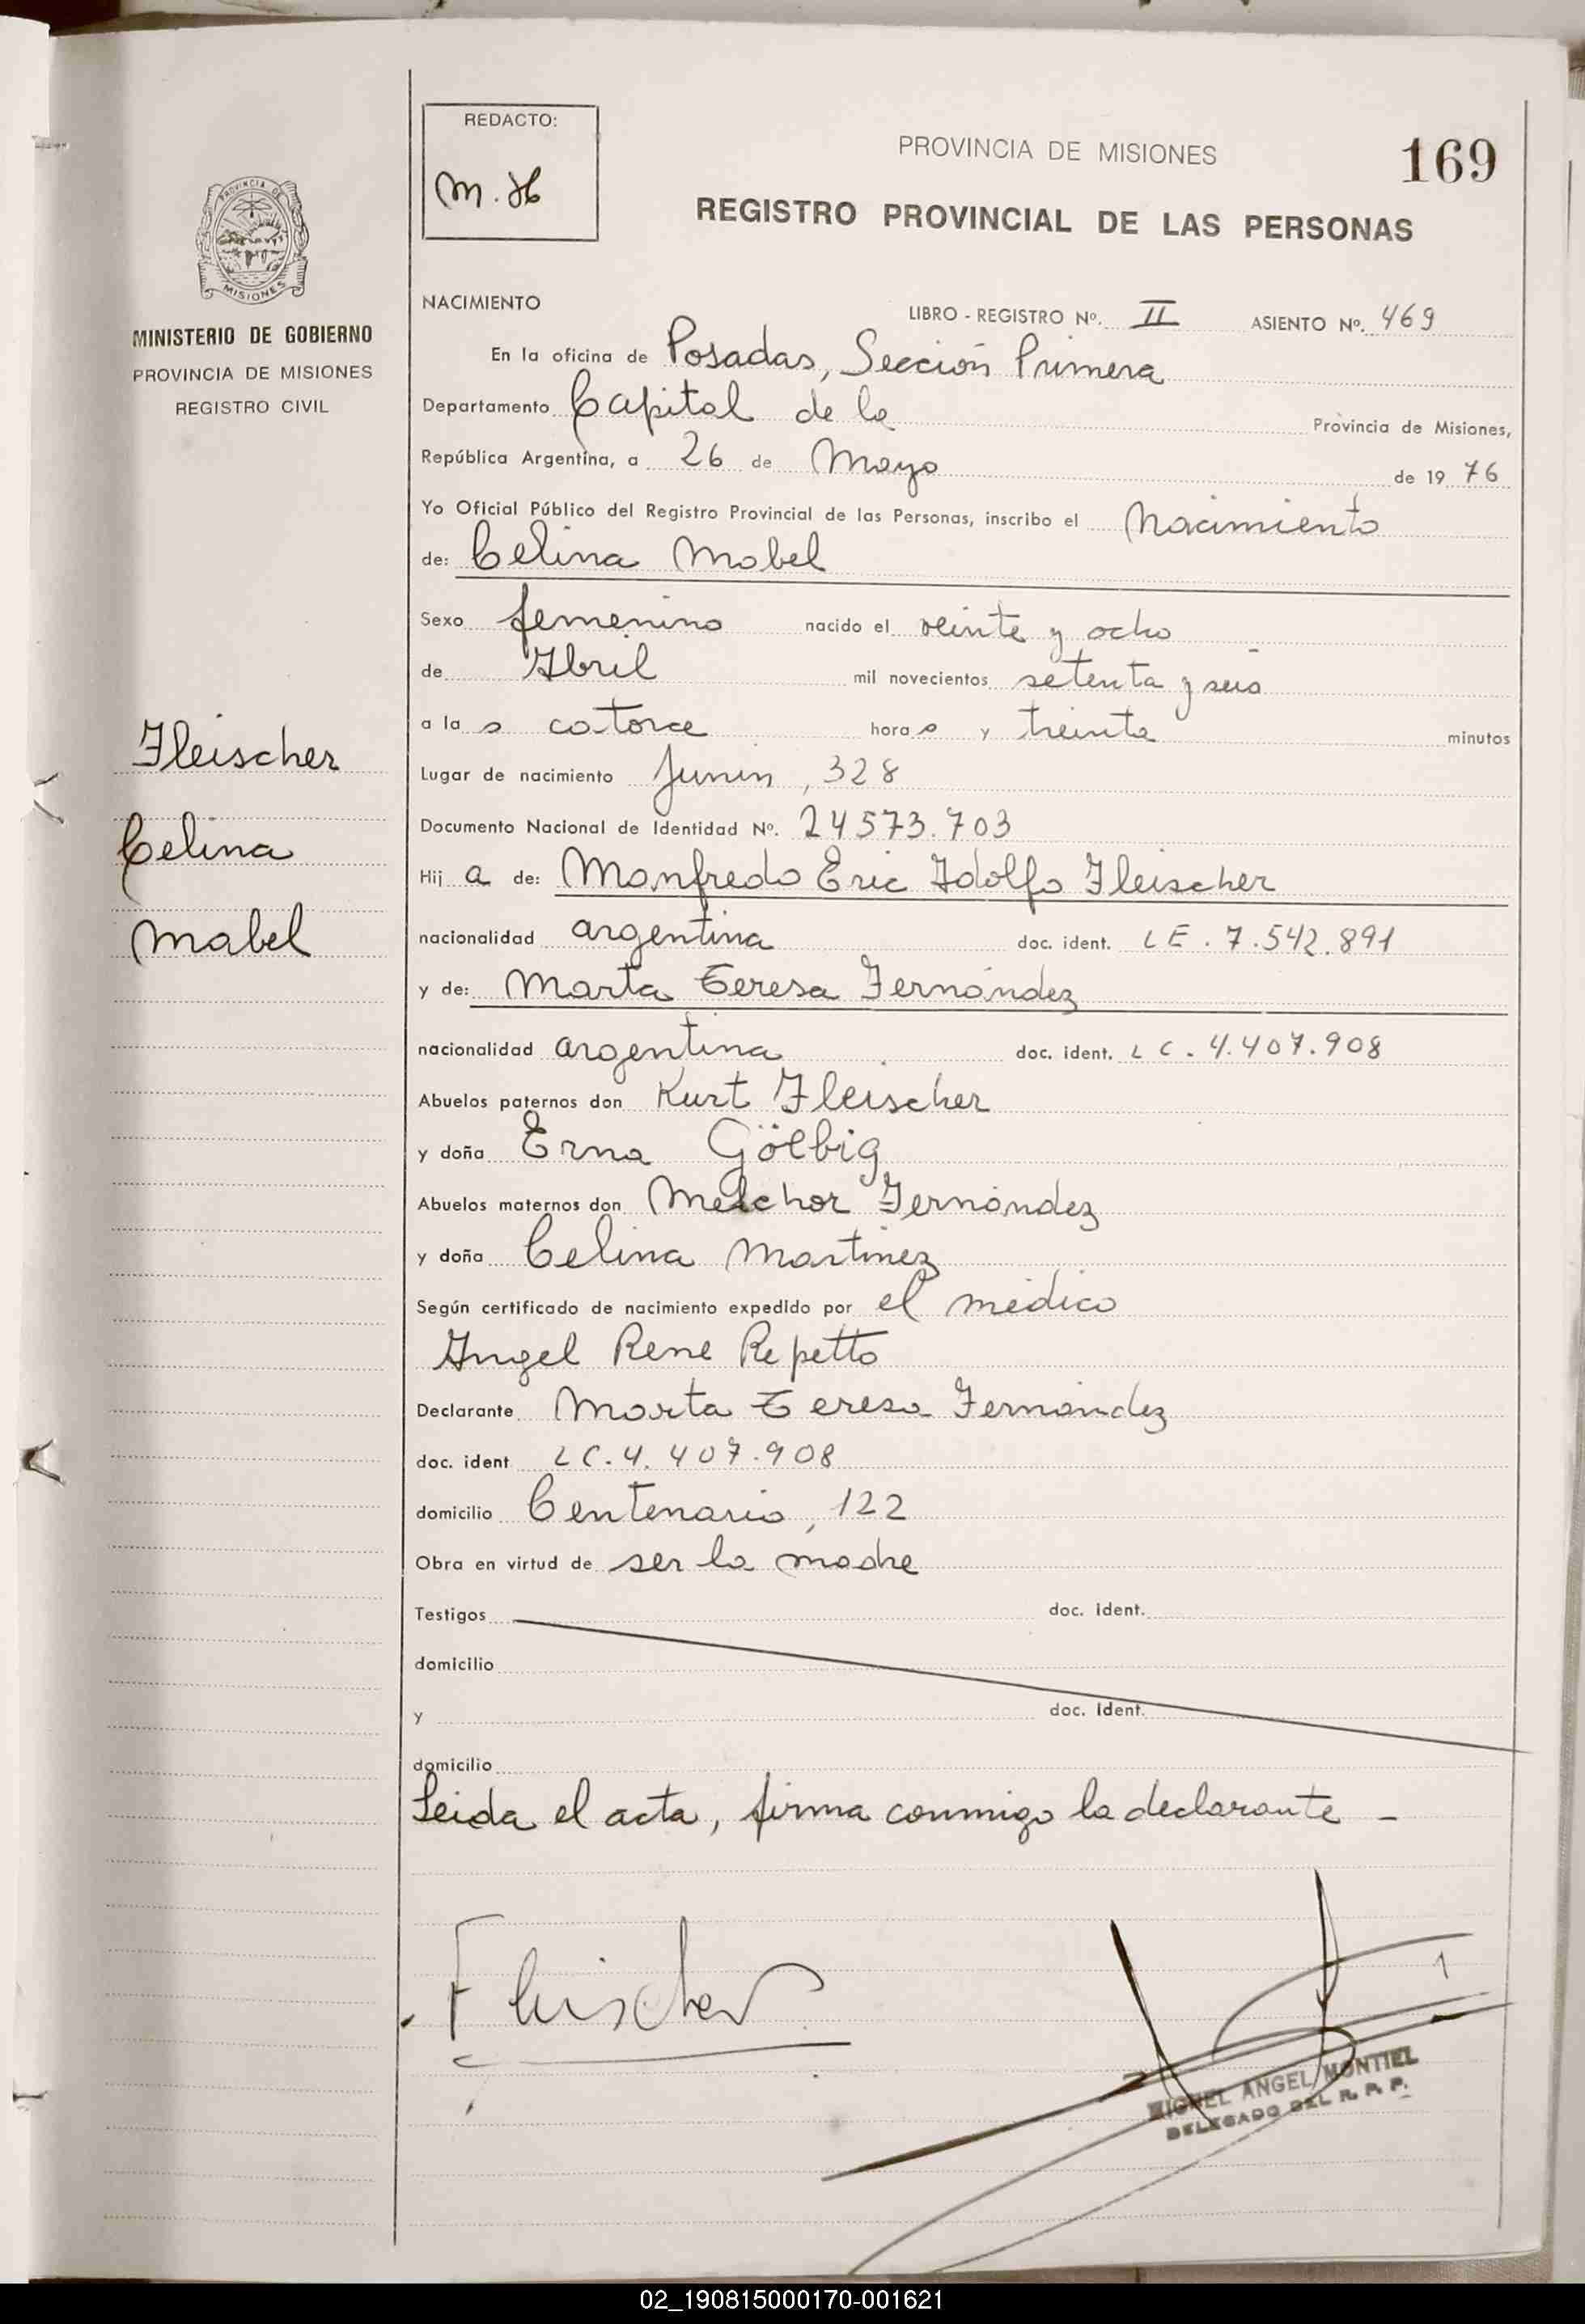 REDACTO:
PROVINCIA DE MISIONES
169
REGISTRO PROVINCIAL DE LAS PERSONAS
PROVINCIA DE
MISIONES
MINISTERIO DE GOBIERNO
PROVINCIA DE MISIONES
REGISTRO CIVIL
Fleischer
Celina
Mabel
NACIMIENTO LIBRO - REGISTRO Nº. II ASIENTO Nº. 469
En la oficina de Posadas, Sección Primera
Departamento Capital de la Provincia de Misiones,
República Argentina, a 26 de Mayo de 19 76
Yo Oficial Público del Registro Provincial de las Personas, inscribo el Nacimiento
de: Celina Mabel
Sexo femenino nacido el veinte y ocho
de Abril mil novecientos setenta y seis
a la s catorce hora s y treinta minutos
Lugar de nacimiento Junin, 328
Documento Nacional de Identidad Nº. 24573.703
Hij a de: Manfredo Eric Adolfo Fleischer
nacionalidad argentina doc. ident. LE. 7.542.891
y de: Marta Teresa Fernández
nacionalidad argentina doc. ident. LC. 4.407.908
Abuelos paternos don Kurt Fleischer
y doña Erna Gölbig
Abuelos maternos don Melchor Fernández
y doña Celina Martinez
Según certificado de nacimiento expedido por el médico
Angel Rene Repetto
Declarante Marta Teresa Fernández
doc. ident LC. 4. 407.908
domicilio Centenario, 122
Obra en virtud de ser la madre
Testigos doc. ident.
domicilio
y doc. ident.
domicilio
Leida el acta, firma conmigo la declarante -
Fleischer
MIGUEL ANGEL MONTIEL
DELEGADO DEL R. P. P.
02_190815000170-001621